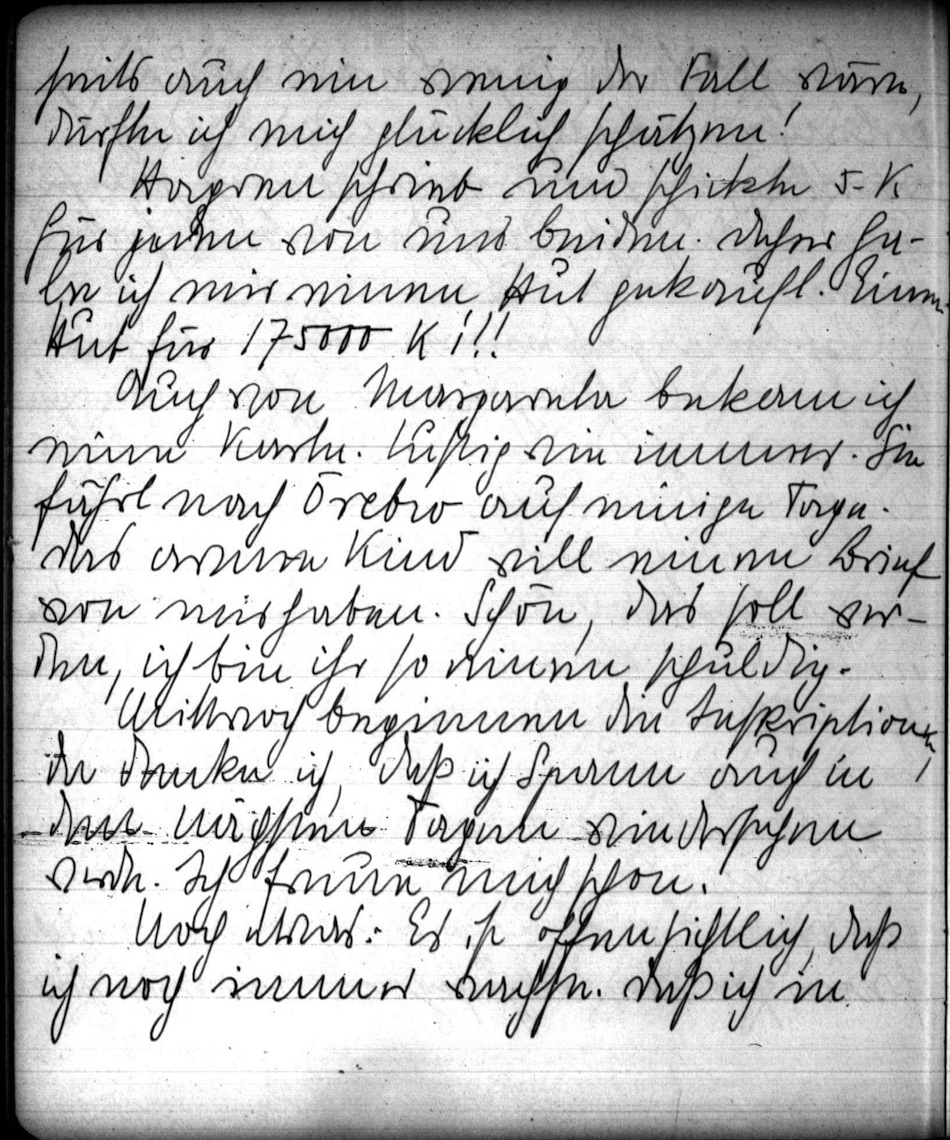 seits auch ein wenig der Fall wäre,
dürfte ich mich glücklich schätzen!
Hagren schrieb und schickte 5 K
für jeden von uns beiden. Daher ha-
be ich mir einen Hut gekauft. Einen
Hut für 175000 K!!!
Auch von Margareta bekam ich
eine Karte. Lustig wie immer. Sie
fährt nach Örebro auf einige Tage.
Das arme Kind will einen Brief
von mir haben. Schön, das soll wer-
den, ich bin ihr so einen schuldig.
Mittwoch beginnen die Inskriptionen,
da denke ich, daß ich Spann auch in
den nächsten Tagen wiedersehen
werde. Ich freue mich schon.
Noch etwas: Es ist offensichtlich, daß
ich noch immer wachse. Daß ich in